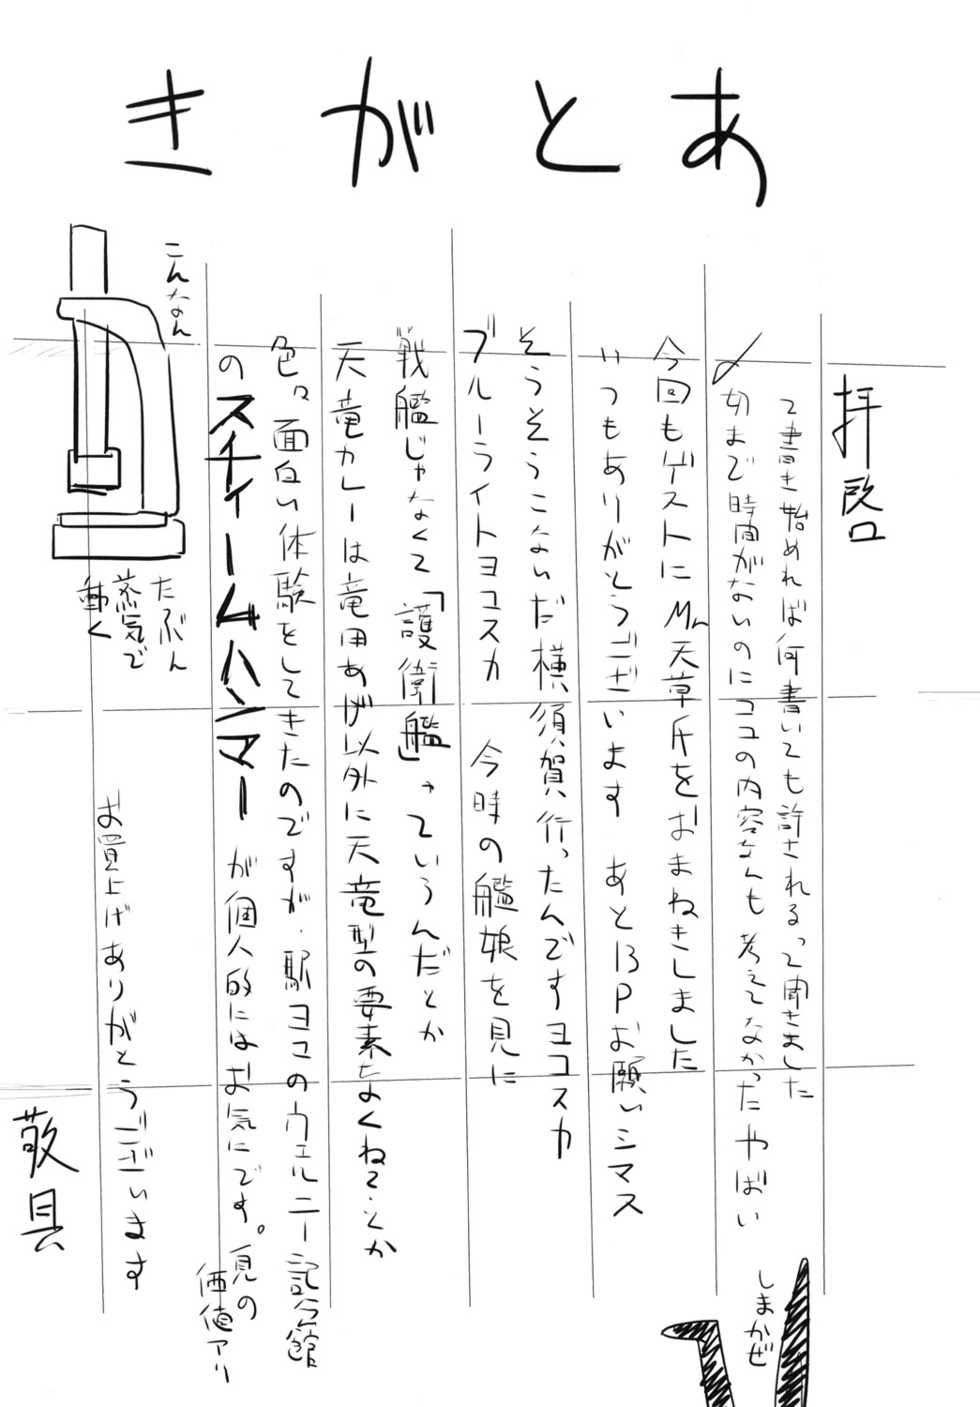 あとがき
拝啓
って書き始めれば何書いても許されるって聞きました
〆切まで時間がないのにココの内容なんも考えてなかったやばい
今回もゲストにMr.天草氏をおまねきしました
いつもありがとうございます あと13Pお願いシマス
そうそうこないだ横須賀行ったんですヨコスカ
ブルーライトヨコスカ 今時の艦娘を見に
戦艦じゃなくて「護衛艦」っていうんだとか
天竜カレーは竜田あげ以外に天竜型の要素なくね?とか
色々面白い体験をしてきたのですが、駅ヨコのヴェルニー記念館
のスチームハンマーが個人的にはお気にです。見の価値アリ
こんなん
たぶん
蒸気で
動く
お買上げありがとうございます
敬具
しまかぜ